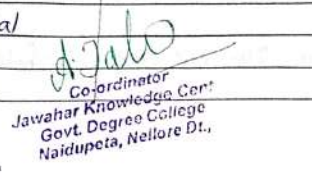 al
Co-ordinator
Jawahar Knowledge Cent
Govt. Degree College
Naidupeta, Nellore Dt.,